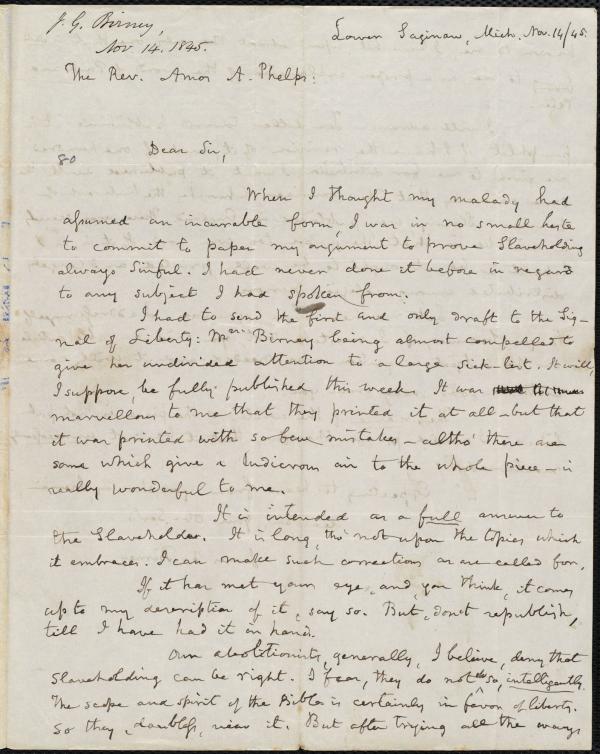 J. G. Birney,
Nov 14. 1845.
Lower Saginaw, Mich. Nov. 14/45.
The Rev. Amos A. Phelps:
80
Dear Sir,
When I thought my malady had
assumed an incurable form, I was in no small haste
to commit to paper my argument to prove Slaveholding
always Sinful. I had never done it before in regard
to any subject I had spoken from.
I had to send the first and only draft to the Sig-
nal of Liberty: Mrs. Birney being almost compelled to
give her undivided attention to a large sick-list. It will,
I suppose, be fully published this week. It was
marvellous to me that they printed it at all – but that
it was printed with so few mistakes – altho' there are
some which give a ludicrous air to the whole piece – is
really wonderful to me.
It is intended as a full answer to
the Slaveholder. It is long, tho' not upon the topics which
it embraces. I can make such corrections as are called for.
If it has met your eye, and, you think, it comes
up to my description of it, say so. But, don't republish,
till I have had it in hand.
Our abolitionists, generally, I believe, deny that
Slaveholding can be right. I fear, they do not do so, intelligently.
The scope and spirit of the Bible is certainly in favor of liberty.
So they, doubtless, view it. But after trying all the ways